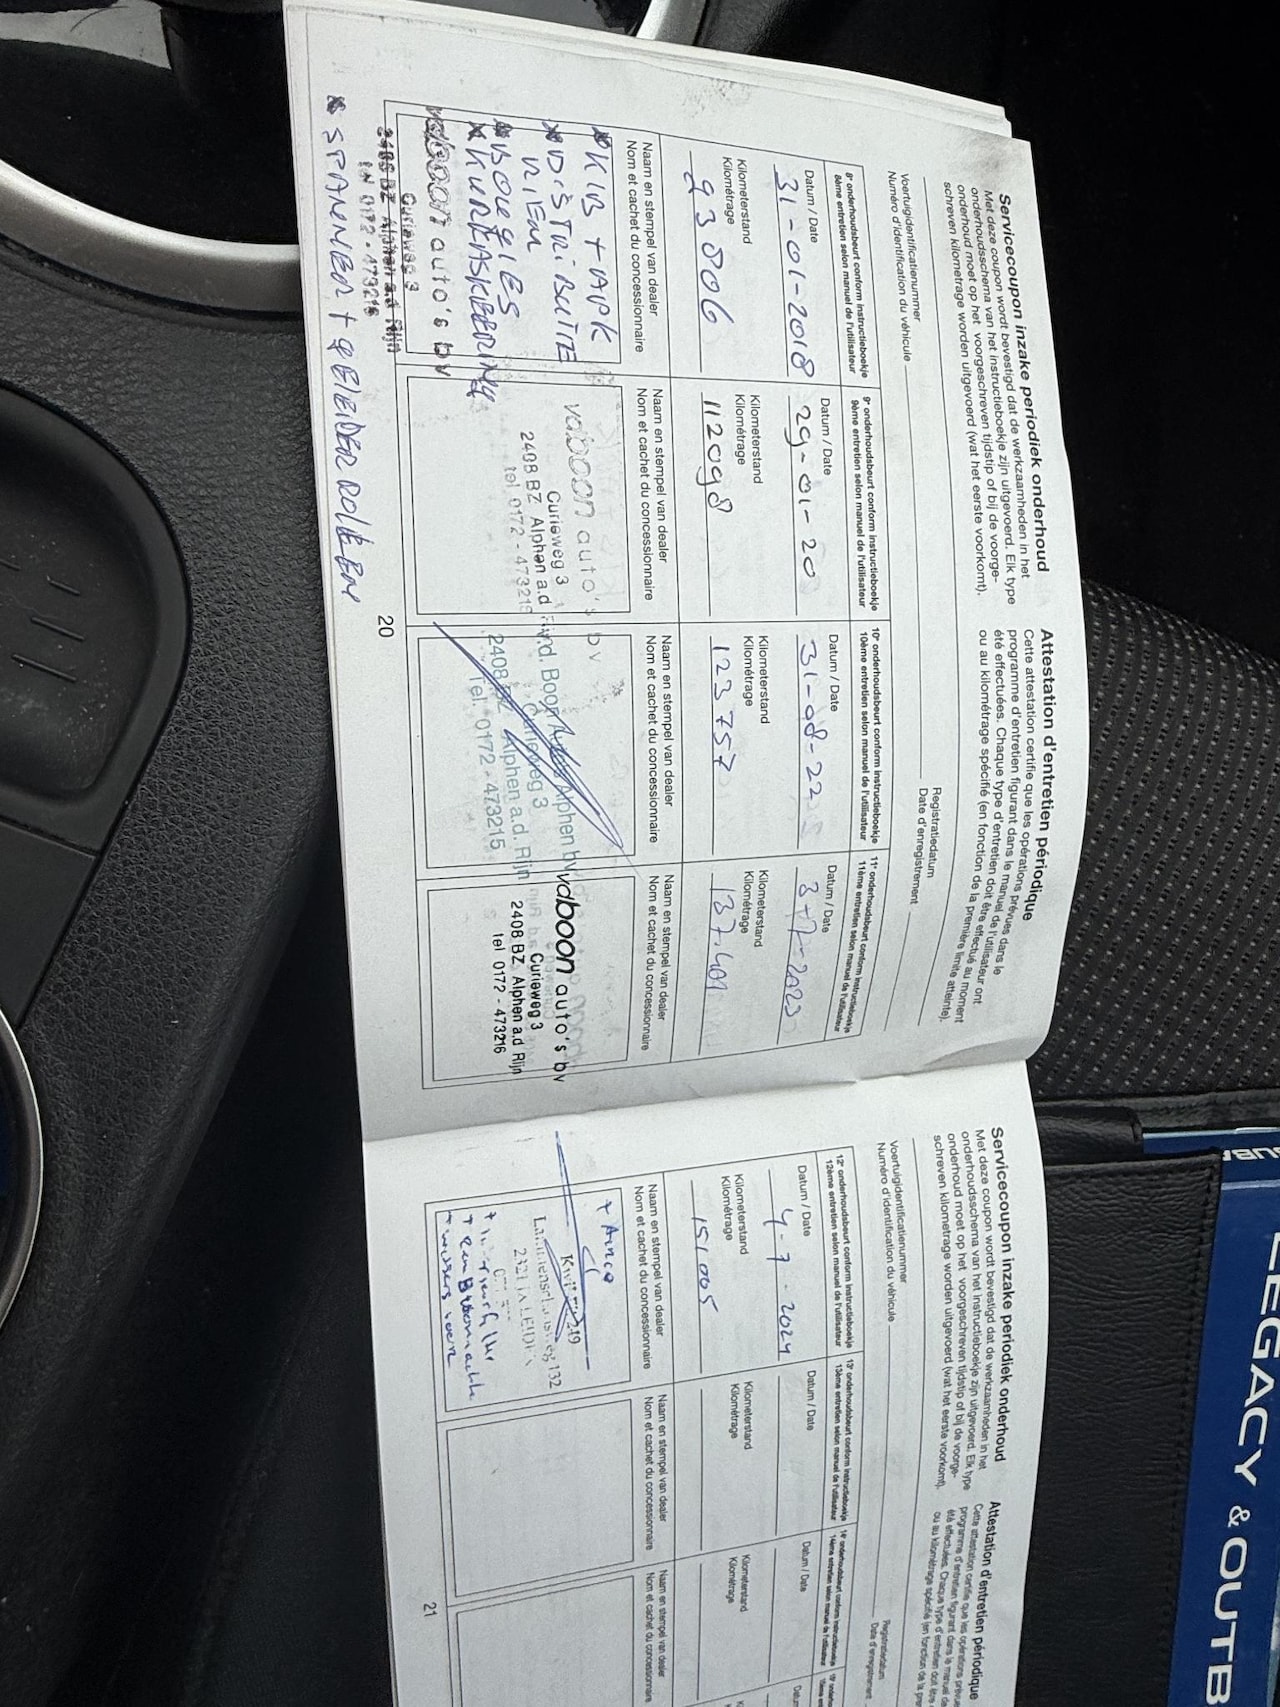 Servicecoupon inzake periodiek onderhoud
Met deze coupon wordt bevestigd dat de werkzaamheden in het
onderhoudsschema van het instructieboekje zijn uitgevoerd. Elk type
onderhoud moet op het voorgeschreven tijdstip of bij de voorge-
schreven kilometrage worden uitgevoerd (wat het eerste voorkomt).
Attestation d'entretien périodique
Cette attestation certifie que les opérations prévues dans le
programme d'entretien figurant dans le manuel de l'utilisateur ont
été effectuées. Chaque type d'entretien doit être effectué au moment
ou au kilométrage spécifié (en fonction de la première limite atteinte).
Voertuigidentificatienummer
Numéro d'identification du véhicule
Registratiedatum
Date d'enregistrement
8e onderhoudsbeurt conform instructieboekje
8ème entretien selon manuel de l'utilisateur
Datum / Date
31-01-2018
Kilometerstand
Kilométrage
93806
Naam en stempel van dealer
Nom et cachet du concessionnaire
DISTRIBUTIE
RIEM
BOUGIES
vdboon auto's bv
Curieweg 3
2408 BZ Alphen a.d Rijn
tel 0172 - 473216
SPANNER + GELEIDER ROLLEN
9e onderhoudsbeurt conform instructieboekje
9ème entretien selon manuel de l'utilisateur
Datum / Date
29-01-20
Kilometerstand
Kilométrage
112098
Naam en stempel van dealer
Nom et cachet du concessionnaire
vdboon auto's bv
Curieweg 3
2408 BZ Alphen a.d
tel 0172 - 473216
10e onderhoudsbeurt conform instructieboekje
10ème entretien selon manuel de l'utilisateur
Datum / Date
31-08-22
Kilometerstand
Kilométrage
123757
Naam en stempel van dealer
Nom et cachet du concessionnaire
Alphen bv
Curieweg 3
2408 BZ Alphen a.d. Rijn
Tel. 0172 - 473215
11e onderhoudsbeurt conform instructieboekje
11ème entretien selon manuel de l'utilisateur
Datum / Date
3-7-2023
Kilometerstand
Kilométrage
137.401
Naam en stempel van dealer
Nom et cachet du concessionnaire
vdboon auto's bv
Curieweg 3
2408 BZ Alphen a.d Rijn
tel 0172 - 473216
20
Servicecoupon inzake periodiek onderhoud
Met deze coupon wordt bevestigd dat de werkzaamheden in het
onderhoudsschema van het instructieboekje zijn uitgevoerd. Elk type
onderhoud moet op het voorgeschreven tijdstip of bij de voorge-
schreven kilometrage worden uitgevoerd (wat het eerste voorkomt).
Attestation d'entretien périodique
Cette attestation certifie que les opérations prévues
programme d'entretien figurant dans le manuel de
été effectuées. Chaque type d'entretien doit être
ou au kilométrage spécifié (en fonction de la
Voertuigidentificatienummer
Numéro d'identification du véhicule
Registratiedatum
Date d'enregistrement
12e onderhoudsbeurt conform instructieboekje
12ème entretien selon manuel de l'utilisateur
Datum / Date
4-7-2024
Kilometerstand
Kilométrage
151005
Naam en stempel van dealer
Nom et cachet du concessionnaire
132
13e onderhoudsbeurt conform instructieboekje
13ème entretien selon manuel de l'utilisateur
Datum / Date
Kilometerstand
Kilométrage
Naam en stempel van dealer
Nom et cachet du concessionnaire
14e onderhoudsbeurt conform instructieboekje
14ème entretien selon manuel de l'utilisateur
Datum / Date
Kilometerstand
Kilométrage
Naam en stempel van dealer
Nom et cachet du concessionnaire
21
LEGACY & OUTB